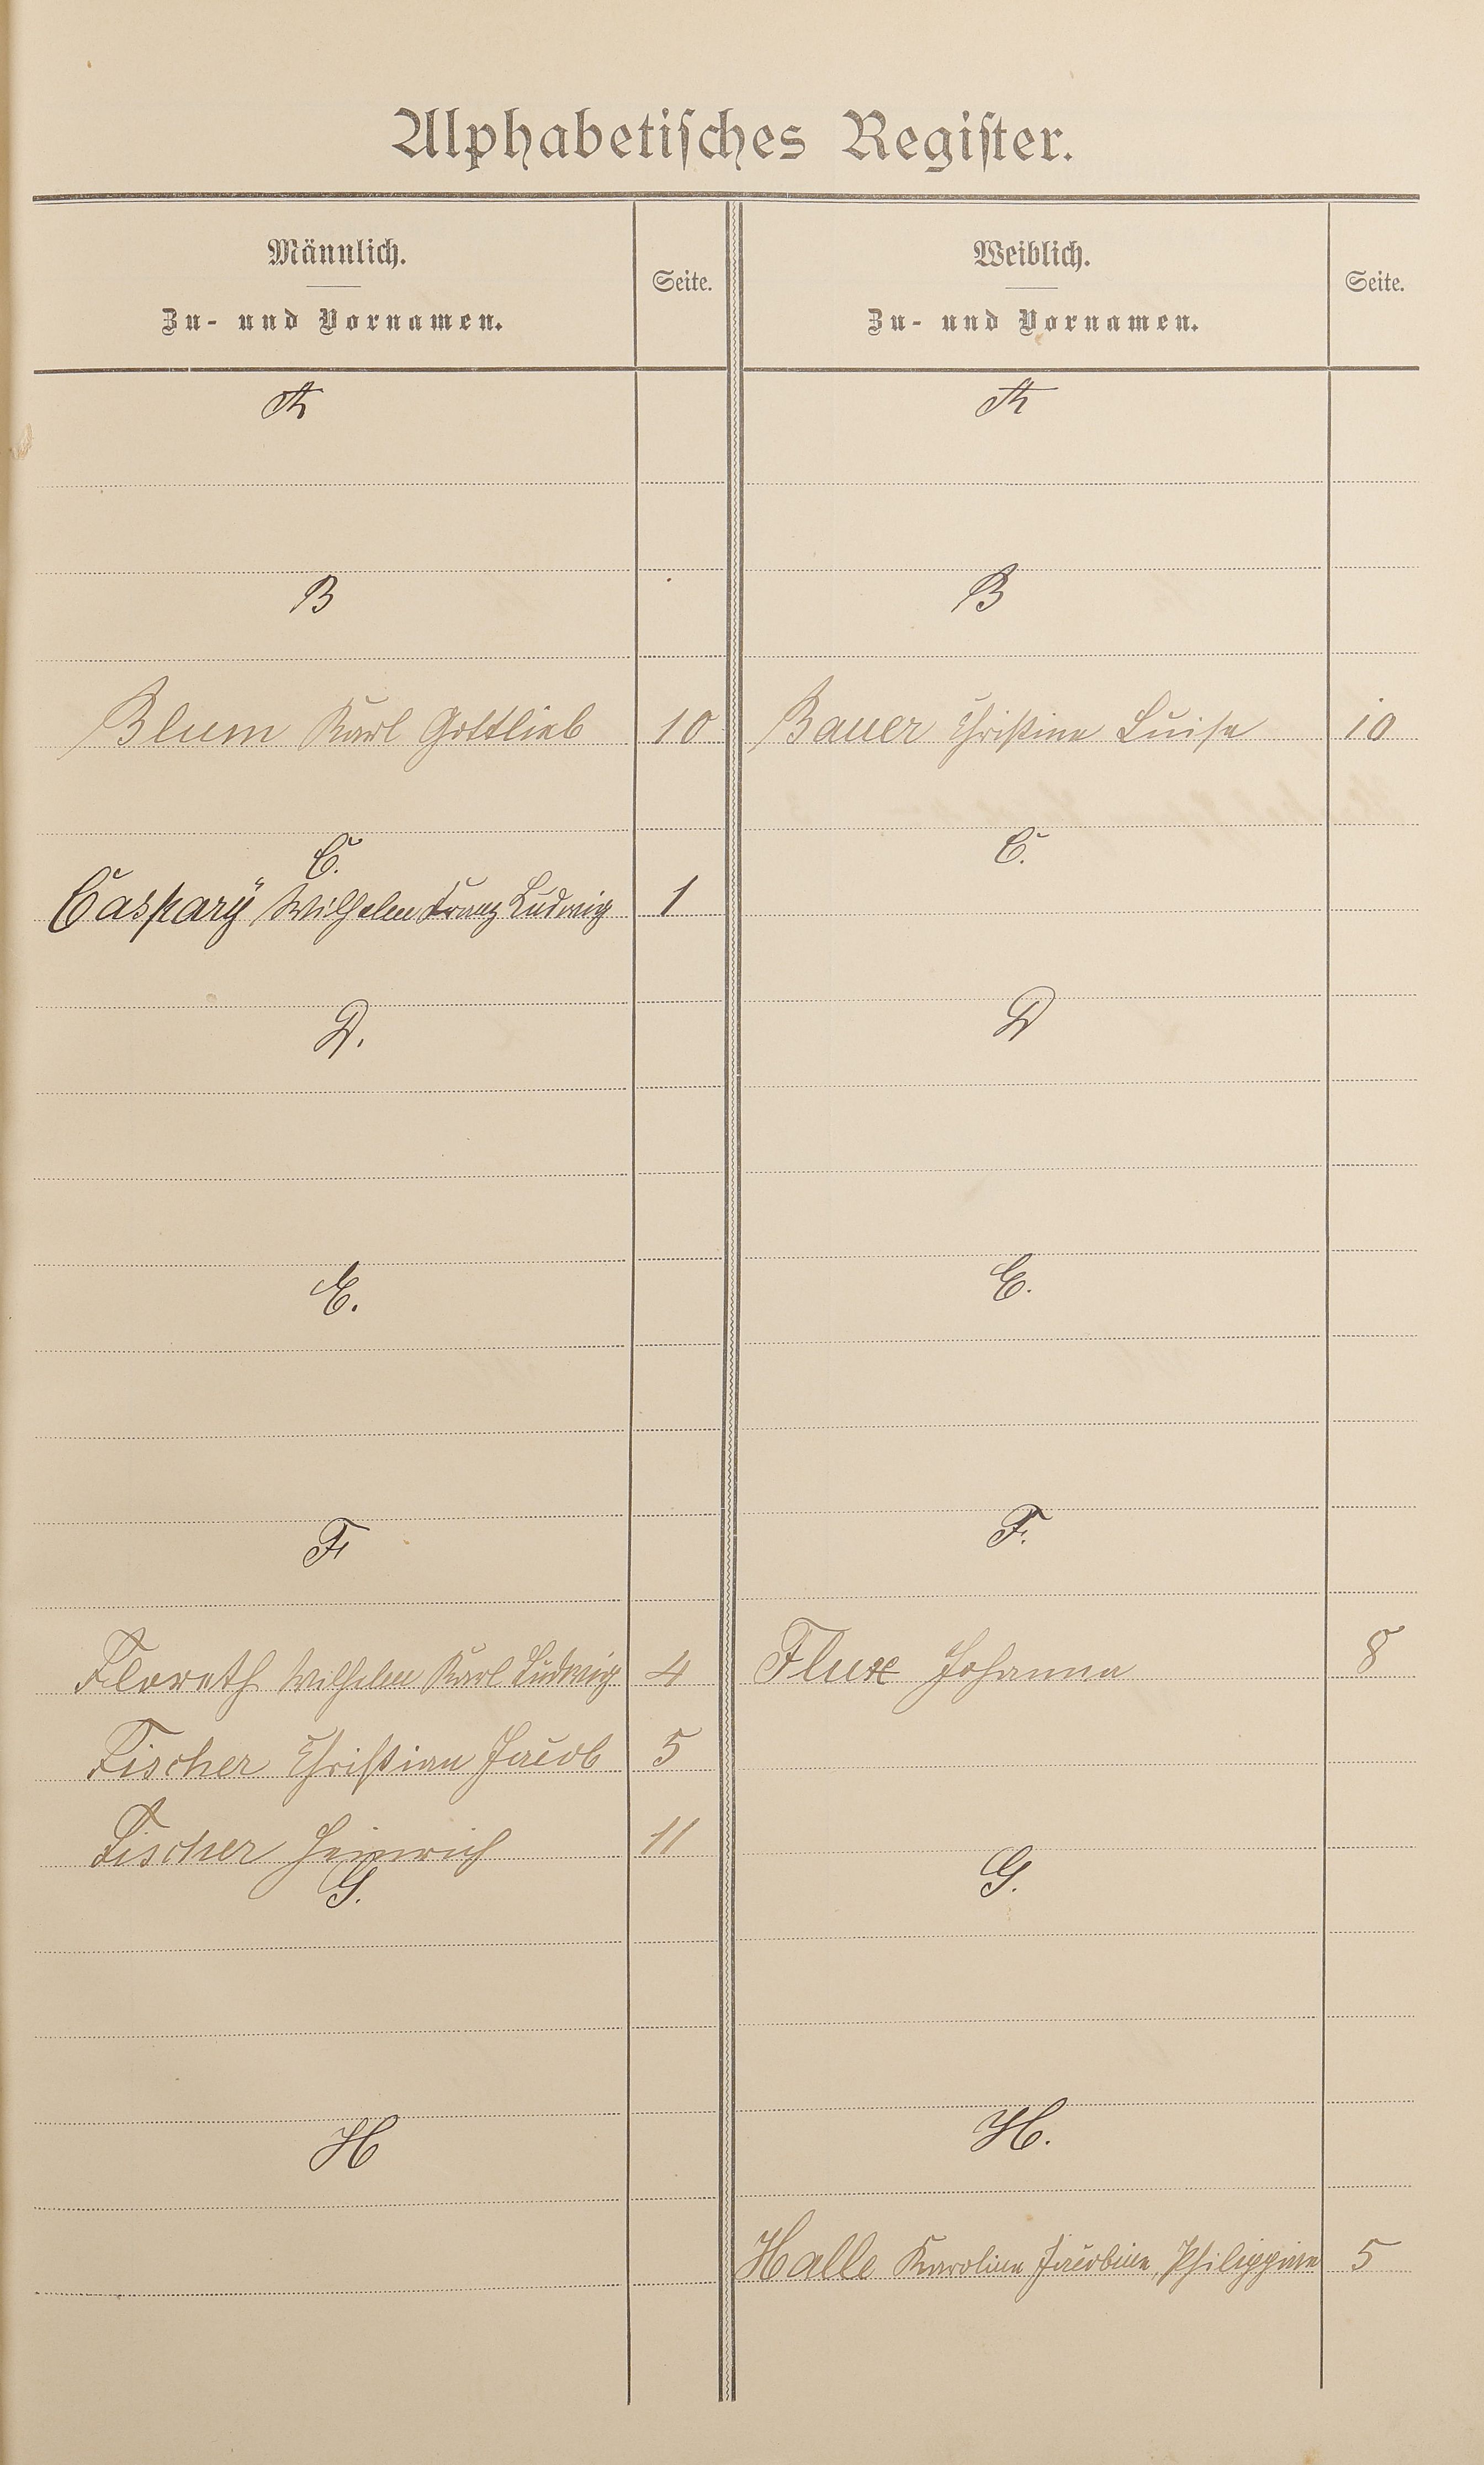 Alphabetisches Register.
Männlich.
Zu- und Vornamen.
Seite.
Weiblich.
Zu- und Vornamen.
Seite.
A A
B B
Blum Karl Gottlieb 10 Bauer Christine Luise 10
C. C.
Caspary Wilhelm Franz Ludwig 1
D. D
E. E.
F F.
Floreth Wilhelm Karl Ludwig 4 Flux Johanna 8
Fischer Christian Jacob 5
Fischer Heinrich 11
G. G.
H H.
Halle Karoline Jacobine Philippine 5